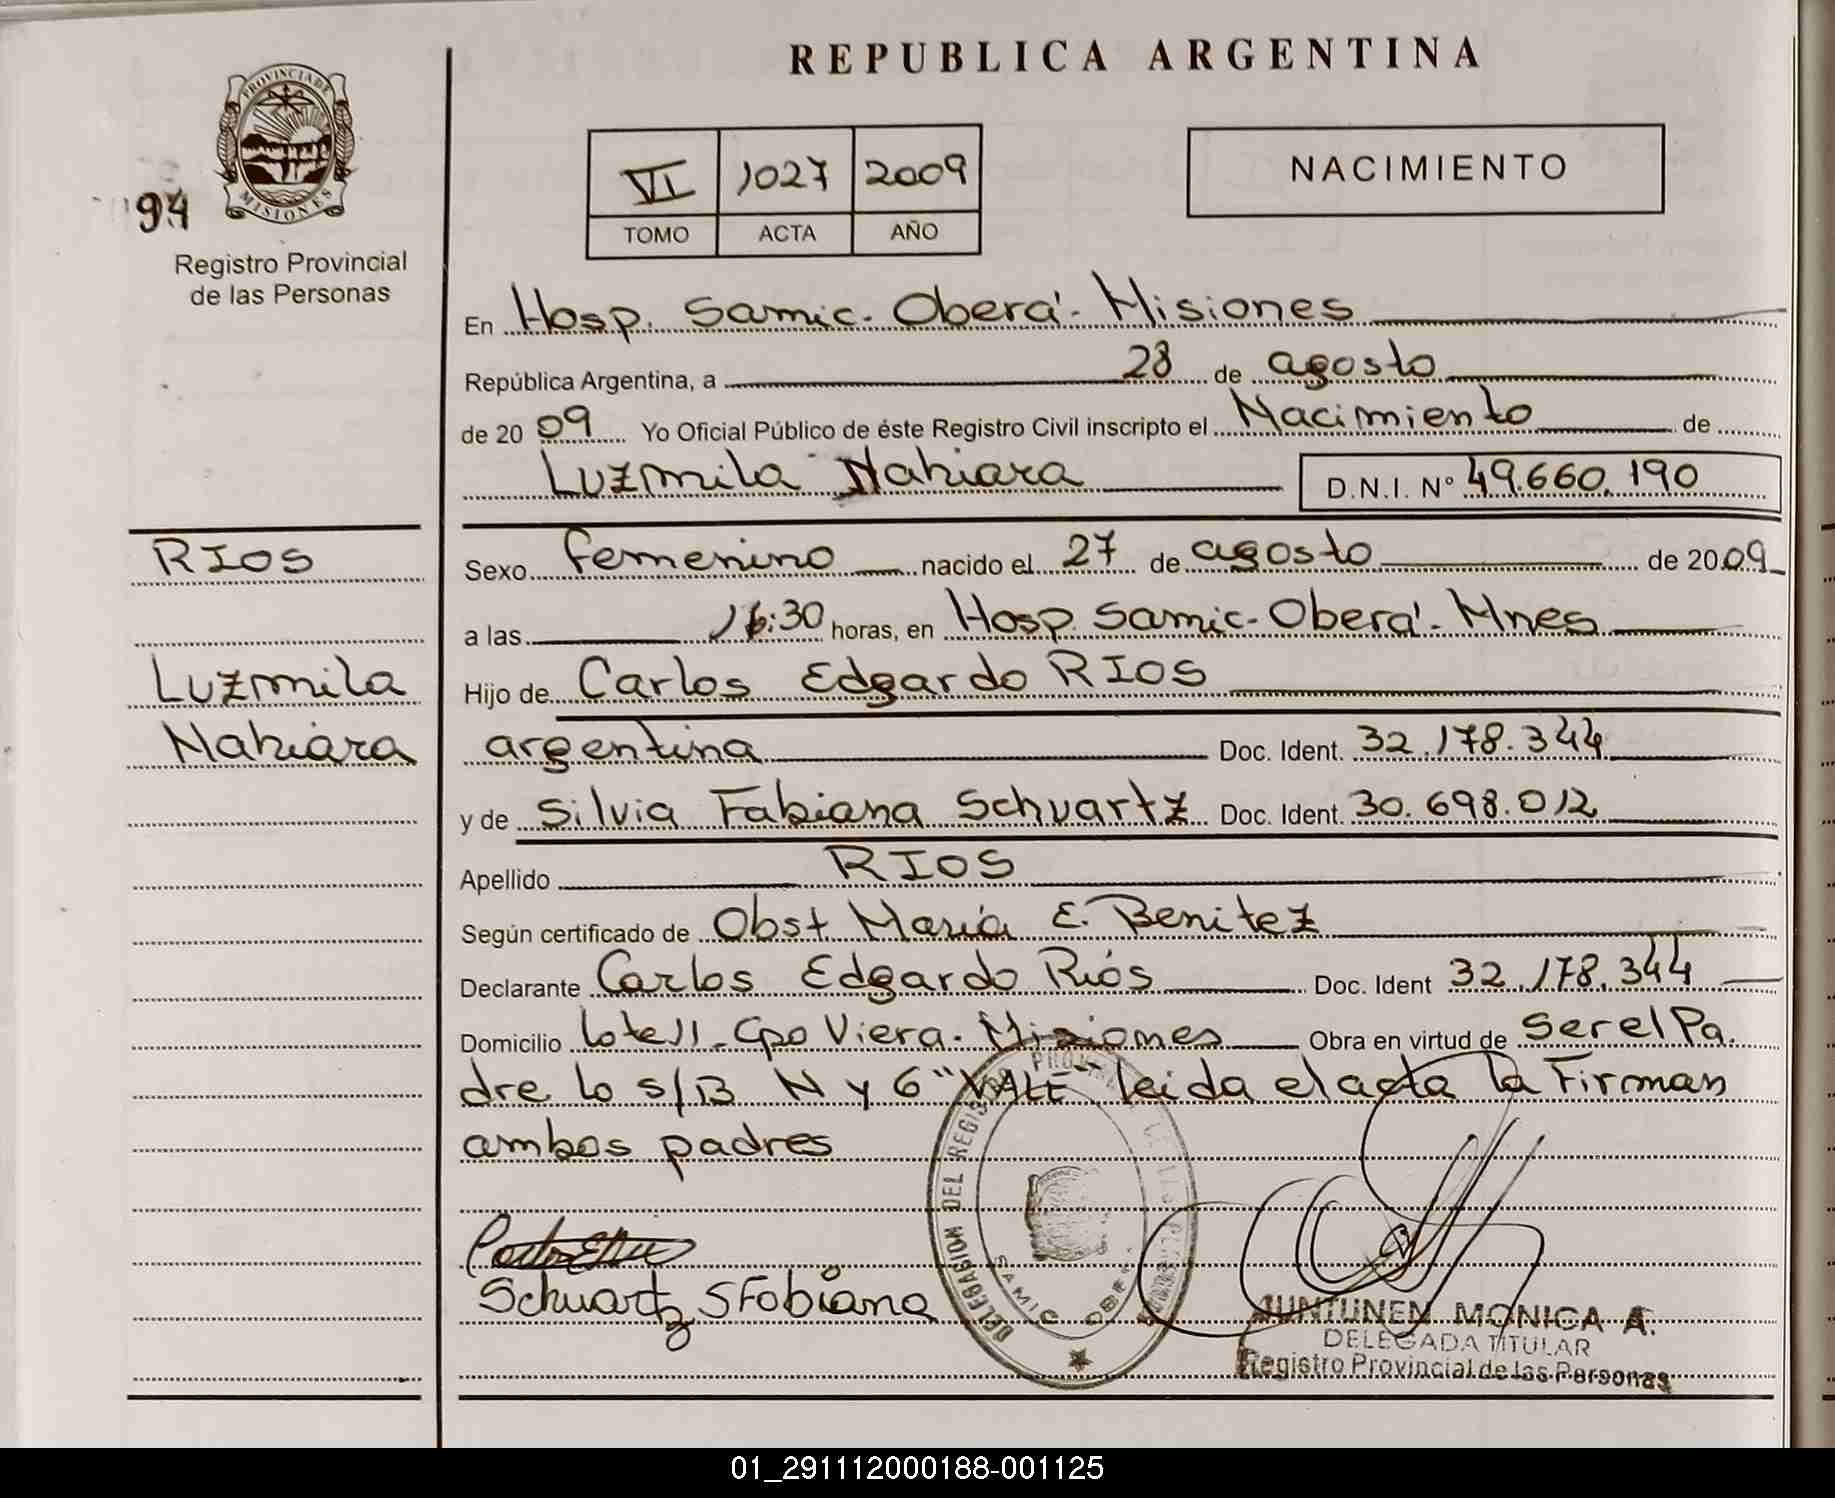 REPUBLICA ARGENTINA
PROVINCIA DE
MISIONES
94
Registro Provincial
de las Personas
VI 1027 2009
TOMO ACTA AÑO
NACIMIENTO
En Hosp. Samic. Oberá. Misiones
República Argentina, a 28 de agosto
de 2009 Yo Oficial Público de éste Registro Civil inscripto el Nacimiento de
Luzmila Nahiara D.N.I. N° 49.660.190
RIOS
Luzmila
Nahiara
Sexo femenino nacido el 27 de agosto de 2009
a las 16:30 horas, en Hosp. Samic. Oberá. Mnes
Hijo de Carlos Edgardo RIOS
argentina Doc. Ident. 32.178.344
y de Silvia Fabiana Schvartz Doc. Ident 30.698.012
Apellido RIOS
Según certificado de Obst María E. Benitez
Declarante Carlos Edgardo Riós Doc. Ident 32.178.344
Domicilio lote 11. Cpo Viera. Misiones Obra en virtud de Ser el Pa.
dre lo s/B N y 6 "VALE" leida el acta la Firman
ambos padres
Schwartz S Fabiana
DELEGACION DEL REGISTRO
SAMIC
JUNTUNEN MONICA A.
DELEGADA TITULAR
Registro Provincial de las Personas
01_291112000188-001125